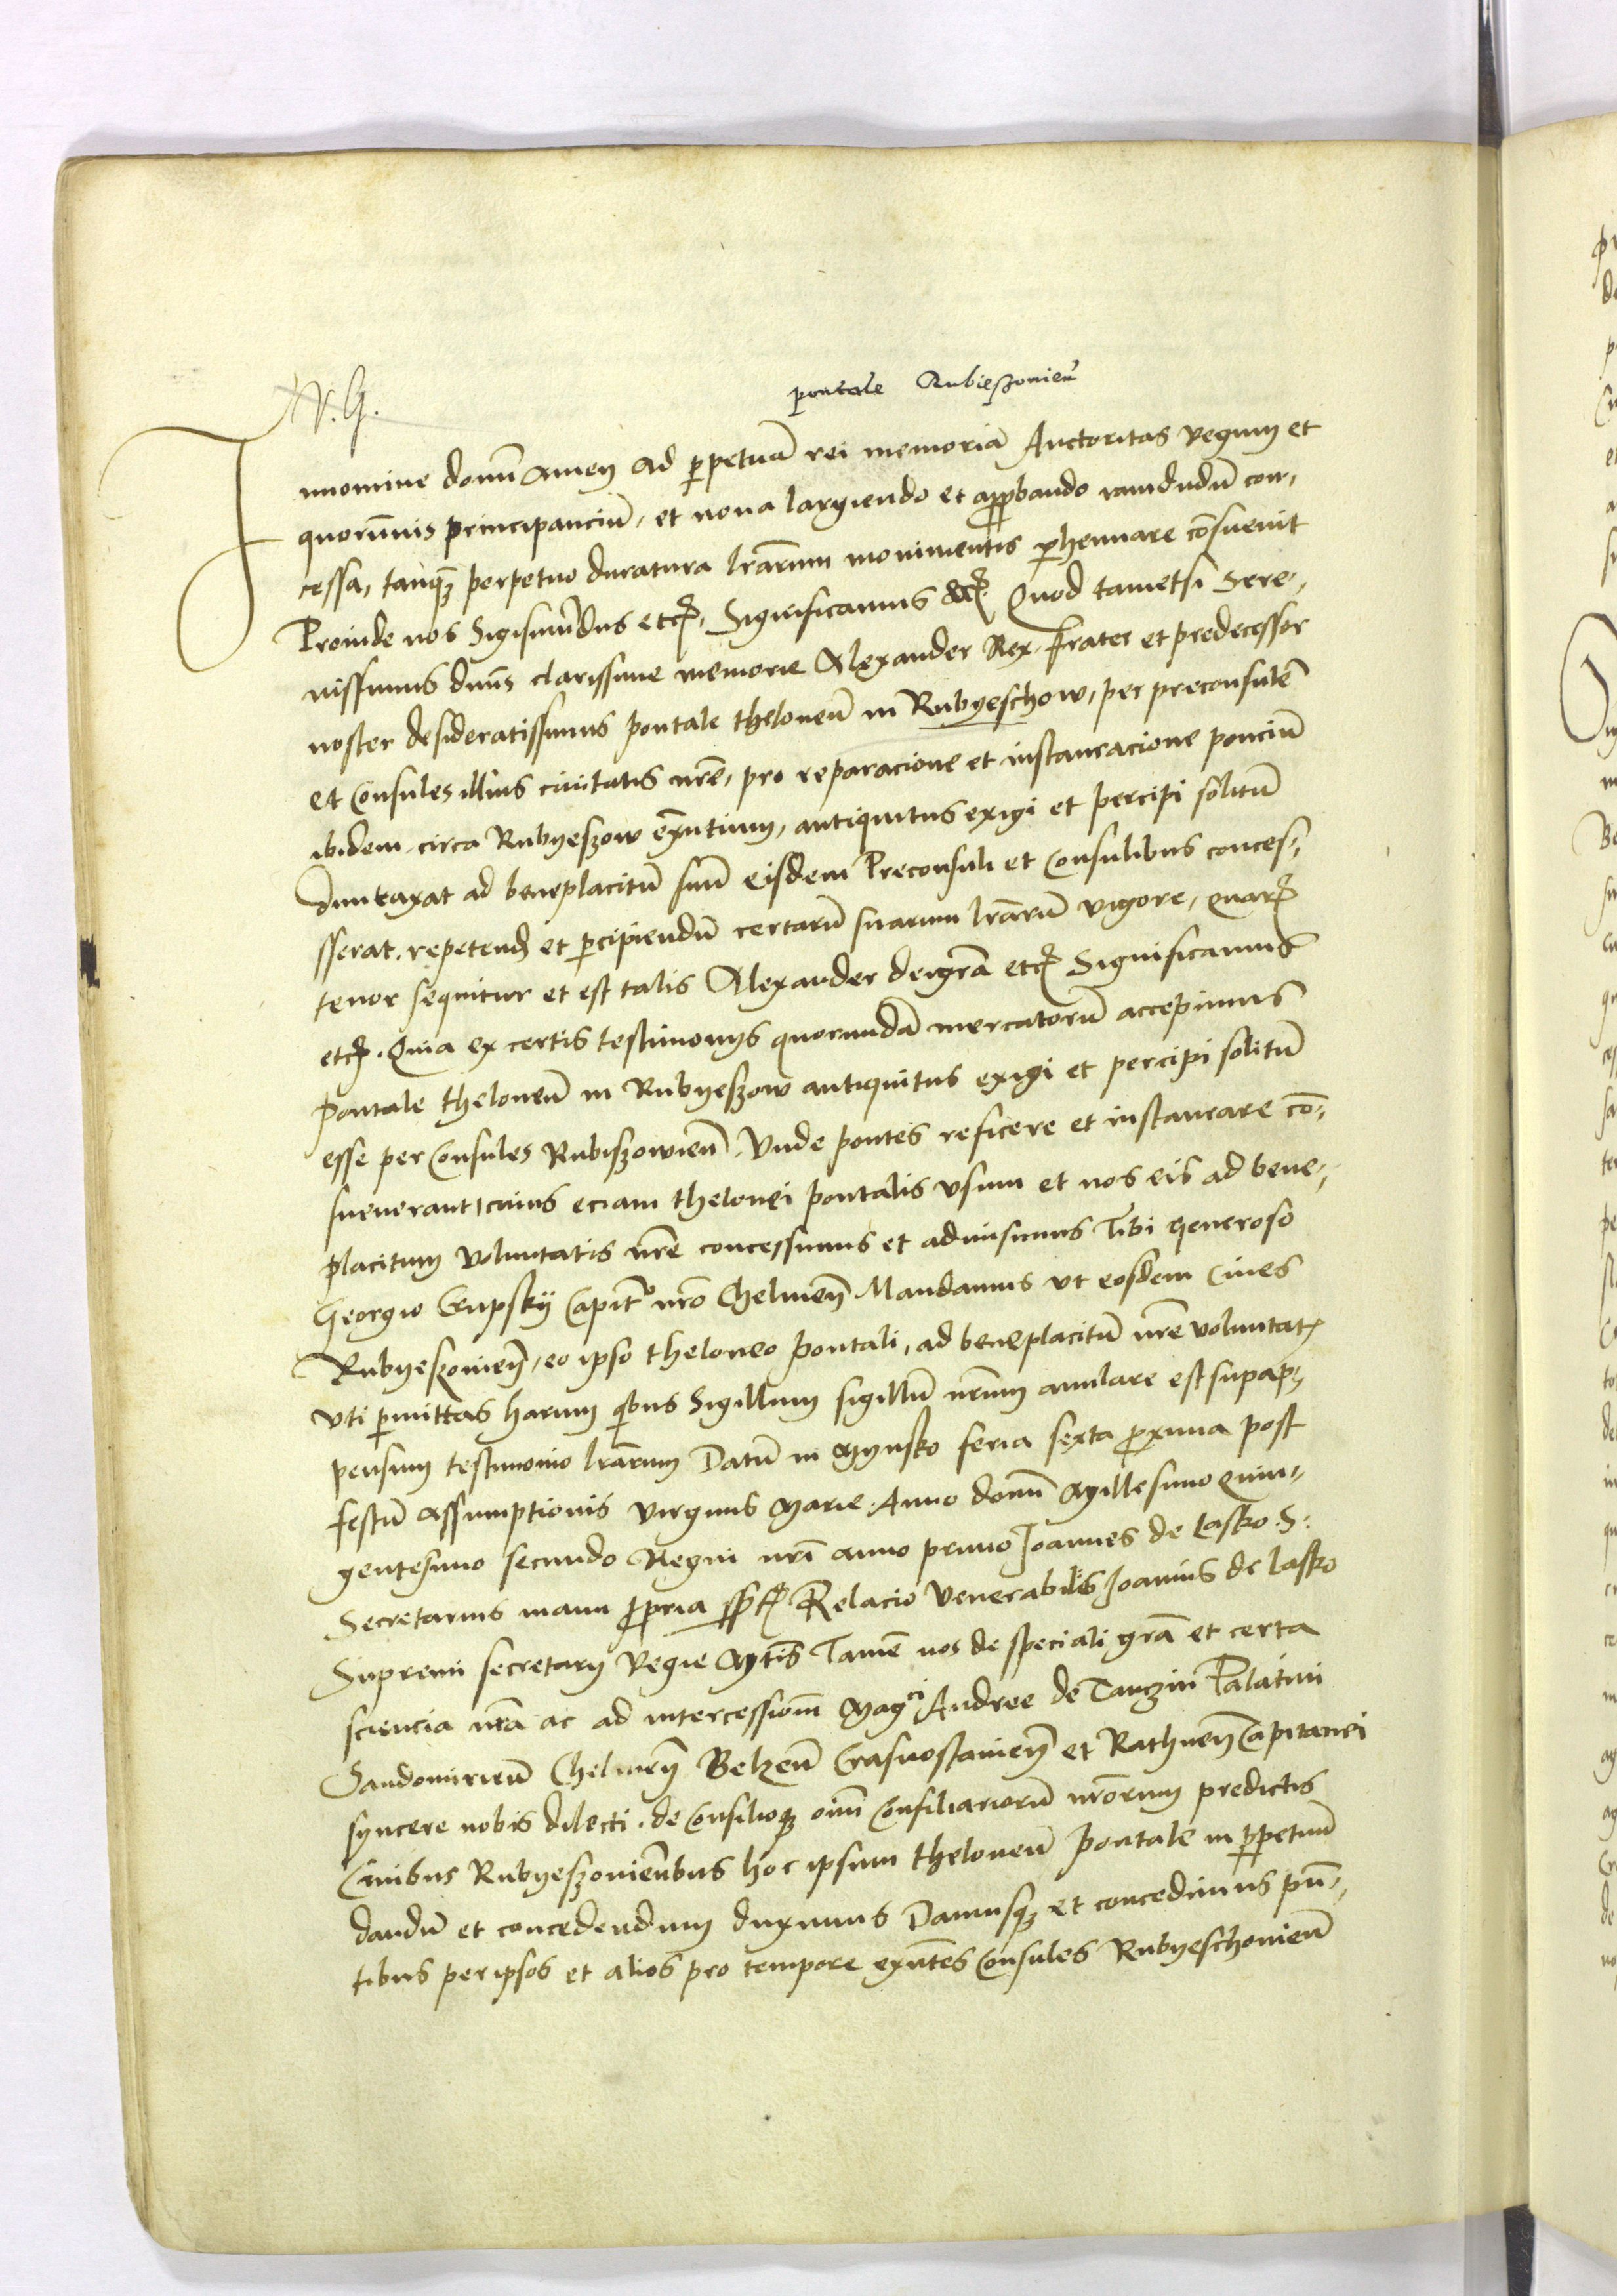 V. G.
pontale Rubieszonien̄
Innomine domī Amen Ad ꝑpetuā rei memoriā Auctoritas regum et
quorūmis principanciū, et noua largiendo et approbando iamdudū con-
cessa, tanqꝫ perpetuo duratura lrārum monimentis ꝑhennare cōsueuit
Proinde nos Sigismūdus etcꝭ. Significamus &cꝭ Quod tametsi Sere-
nissimus dnūs clarissime memorie Alexander Rex, frater et predecessor
noster desideratissimus pontale theloneū in Rubyeschow, per preconsulē
et Consules illius ciuitatis nrē, pro reparacione et instauracione ponciū
ibidem circa Rubyeszow exn̄tium, antiquitus exigi et percipi solitū
dumtaxat ad beneplacitū suū eisdem Preconsuli et Consulibus conces-
sserat. repetend et ꝑcipiendū certarū suarum lrārū vigore, quarꝭ
tenor sequitur et est talis Alexander deigrā etcꝭ Significamus
etcꝭ. Quia ex certis testimonijs quorundā mercatorū accepimus
Pontale theloneū in Rubyeszow antiquitus exigi et percipi solitū
esse per Consules Rubiszowien̄. Vnde pontes reficere et instaurare cō-
sueuerant, cuius eciam thelonei pontalis vsum et nos eis ad bene-
placitum voluntatis nrē concessimus et admisimus Tibi Generoso
Georgio Crupskij Capitō nrō Chelmen̄ Mandamus vt eosdem Ciues
Rubyeszonien̄, eo ipso theloneo pontali, ad beneplacitū nrē voluntatꝭ
vti ꝑmittas harum qbus Sigillum sigillū nrūm anulare est supap-
pensum testimonio lrārum Datū in Mynsko feria sexta ꝓxima post
festū Assumptionis virginis Marie. Anno domī Millesimo Quin-
gentesimo secundo Regni nrī anno primo Joannes de Lasko. S.
Secretarius manu ꝓpria sspt Relacio Venerabilis Joannis de Lasko
Supremi secretarij Regie Mtīs Tamē nos de speciali grā et certa
sciencia nrā ac ad intercessionē Magci Andree de Tanczin Palatini
Sandomirien̄ Chelmen̄ Belzen̄ Crasnostauien̄ et Rathnen̄ Capitanei
syncere nobis dilecti. de Consilioqꝫ oīm Consiliariorū nrōrum predictis
Ciuibus Rubyeszonien̄bus hoc ipsum theloneū pontale in ꝑpetuū
dandū et concedendum duximus Damusqꝫ et concedimus pn̄-
tibus per ipsos et alios pro tempore exn̄tes Consules Rubyeschonien̄